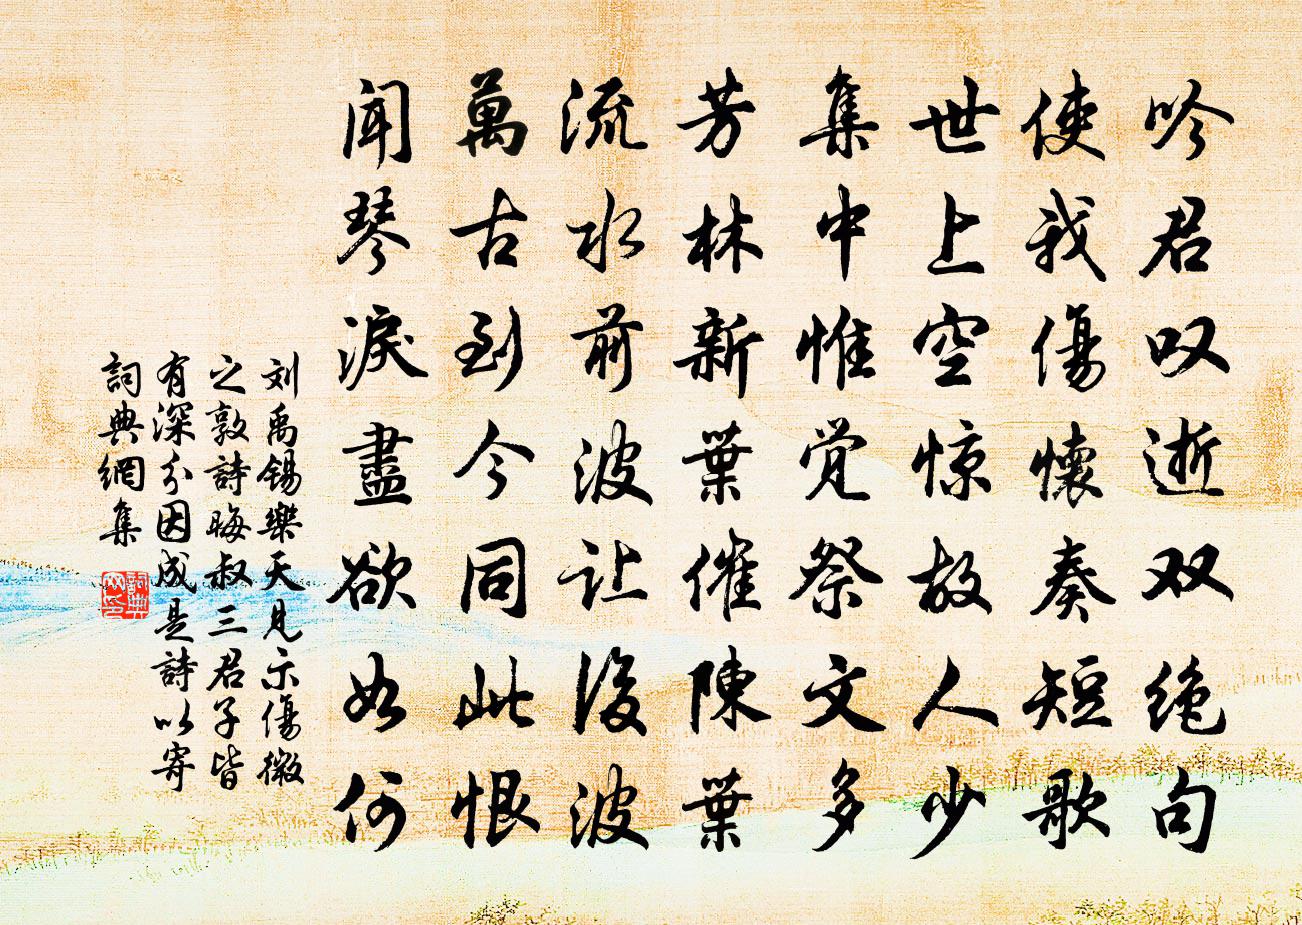 吟君叹逝双绝句
使我傷懷奏短歌
世上空惊故人少
集中惟觉祭文多
芳林新葉催陳葉
流水前波让後波
萬古到今同此恨
闻琴淚盡欲如何
刘禹锡樂天見示傷微
之敦詩晦叔三君子皆
有深分因成是詩以寄
詞典網集
詞典
网印